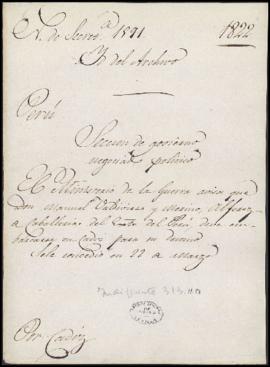 N. de Secret.ª 1571 1822
Y del Archivo
Perú
Seccion de gobierno
negociado politico
El Ministerio de la Guerra avisa que
Don Manuel Valdivieso y Merino, Alferez
de Caballeria del Exto del Perú, debe em-
barcarse en Cadiz para su destino
Se le concedió en 22 de Marzo
Indiferente 313
Por Cadiz